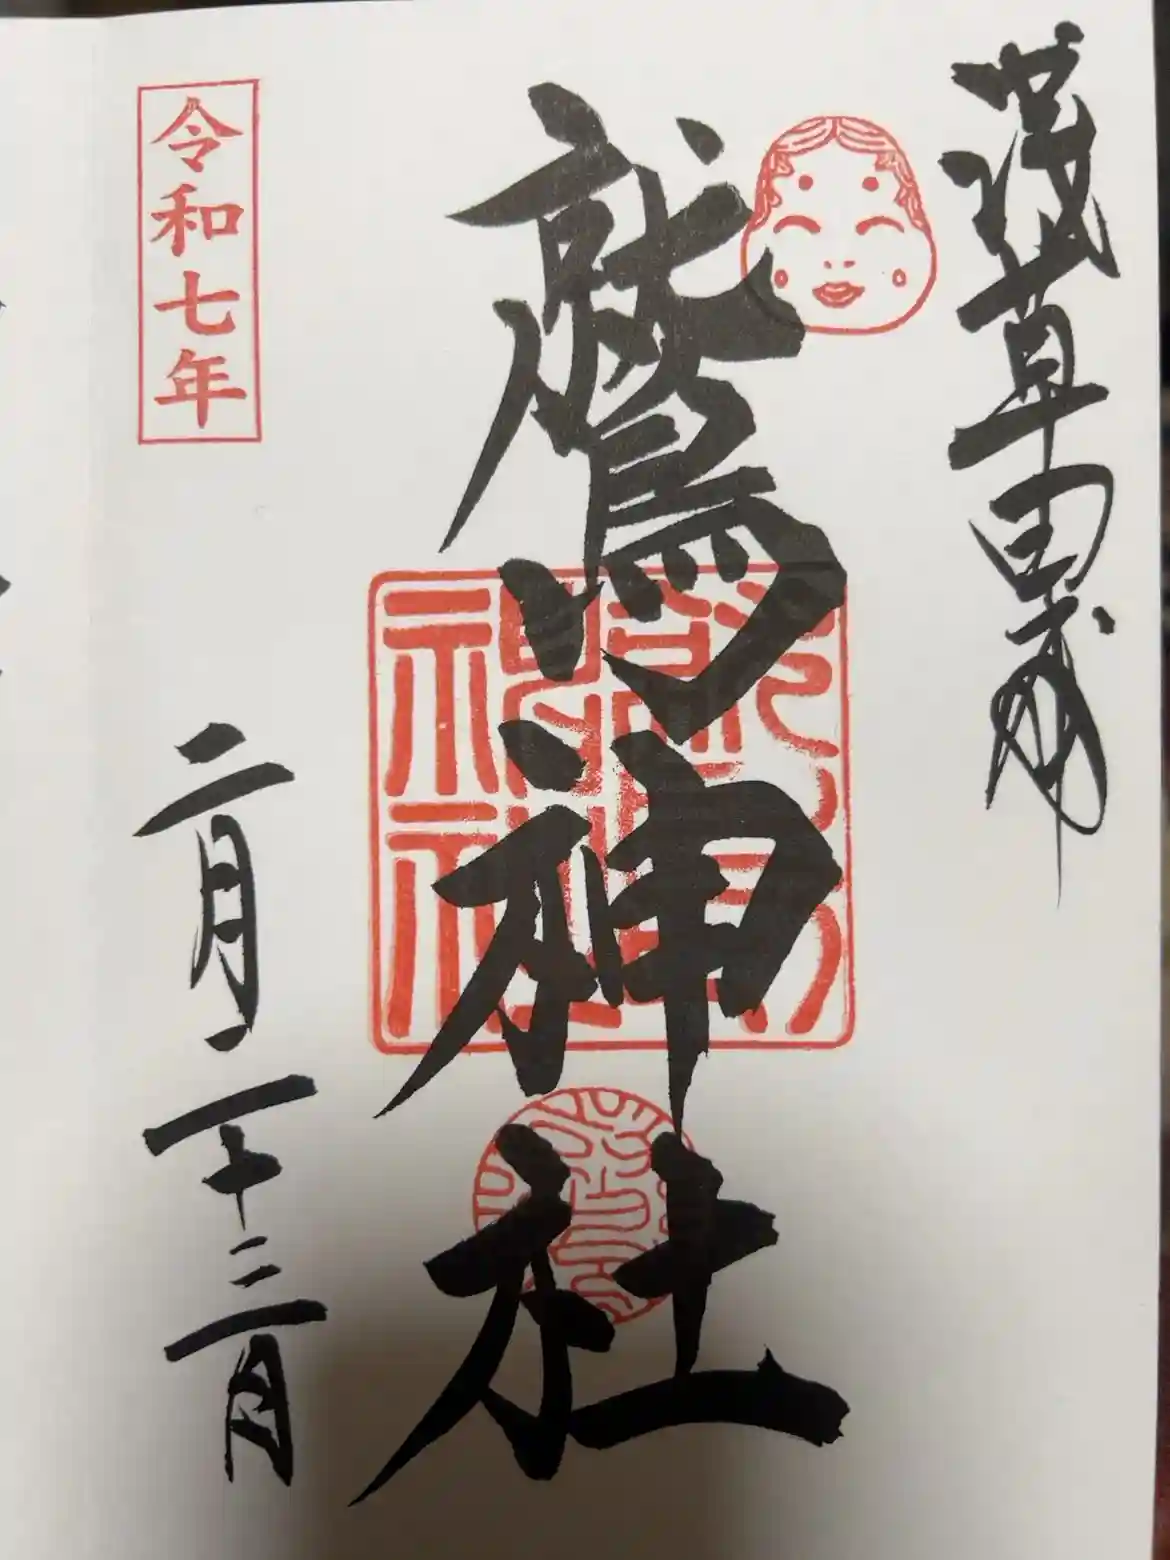 淺草田甫
鷲神社
令和七年
二月二十三日